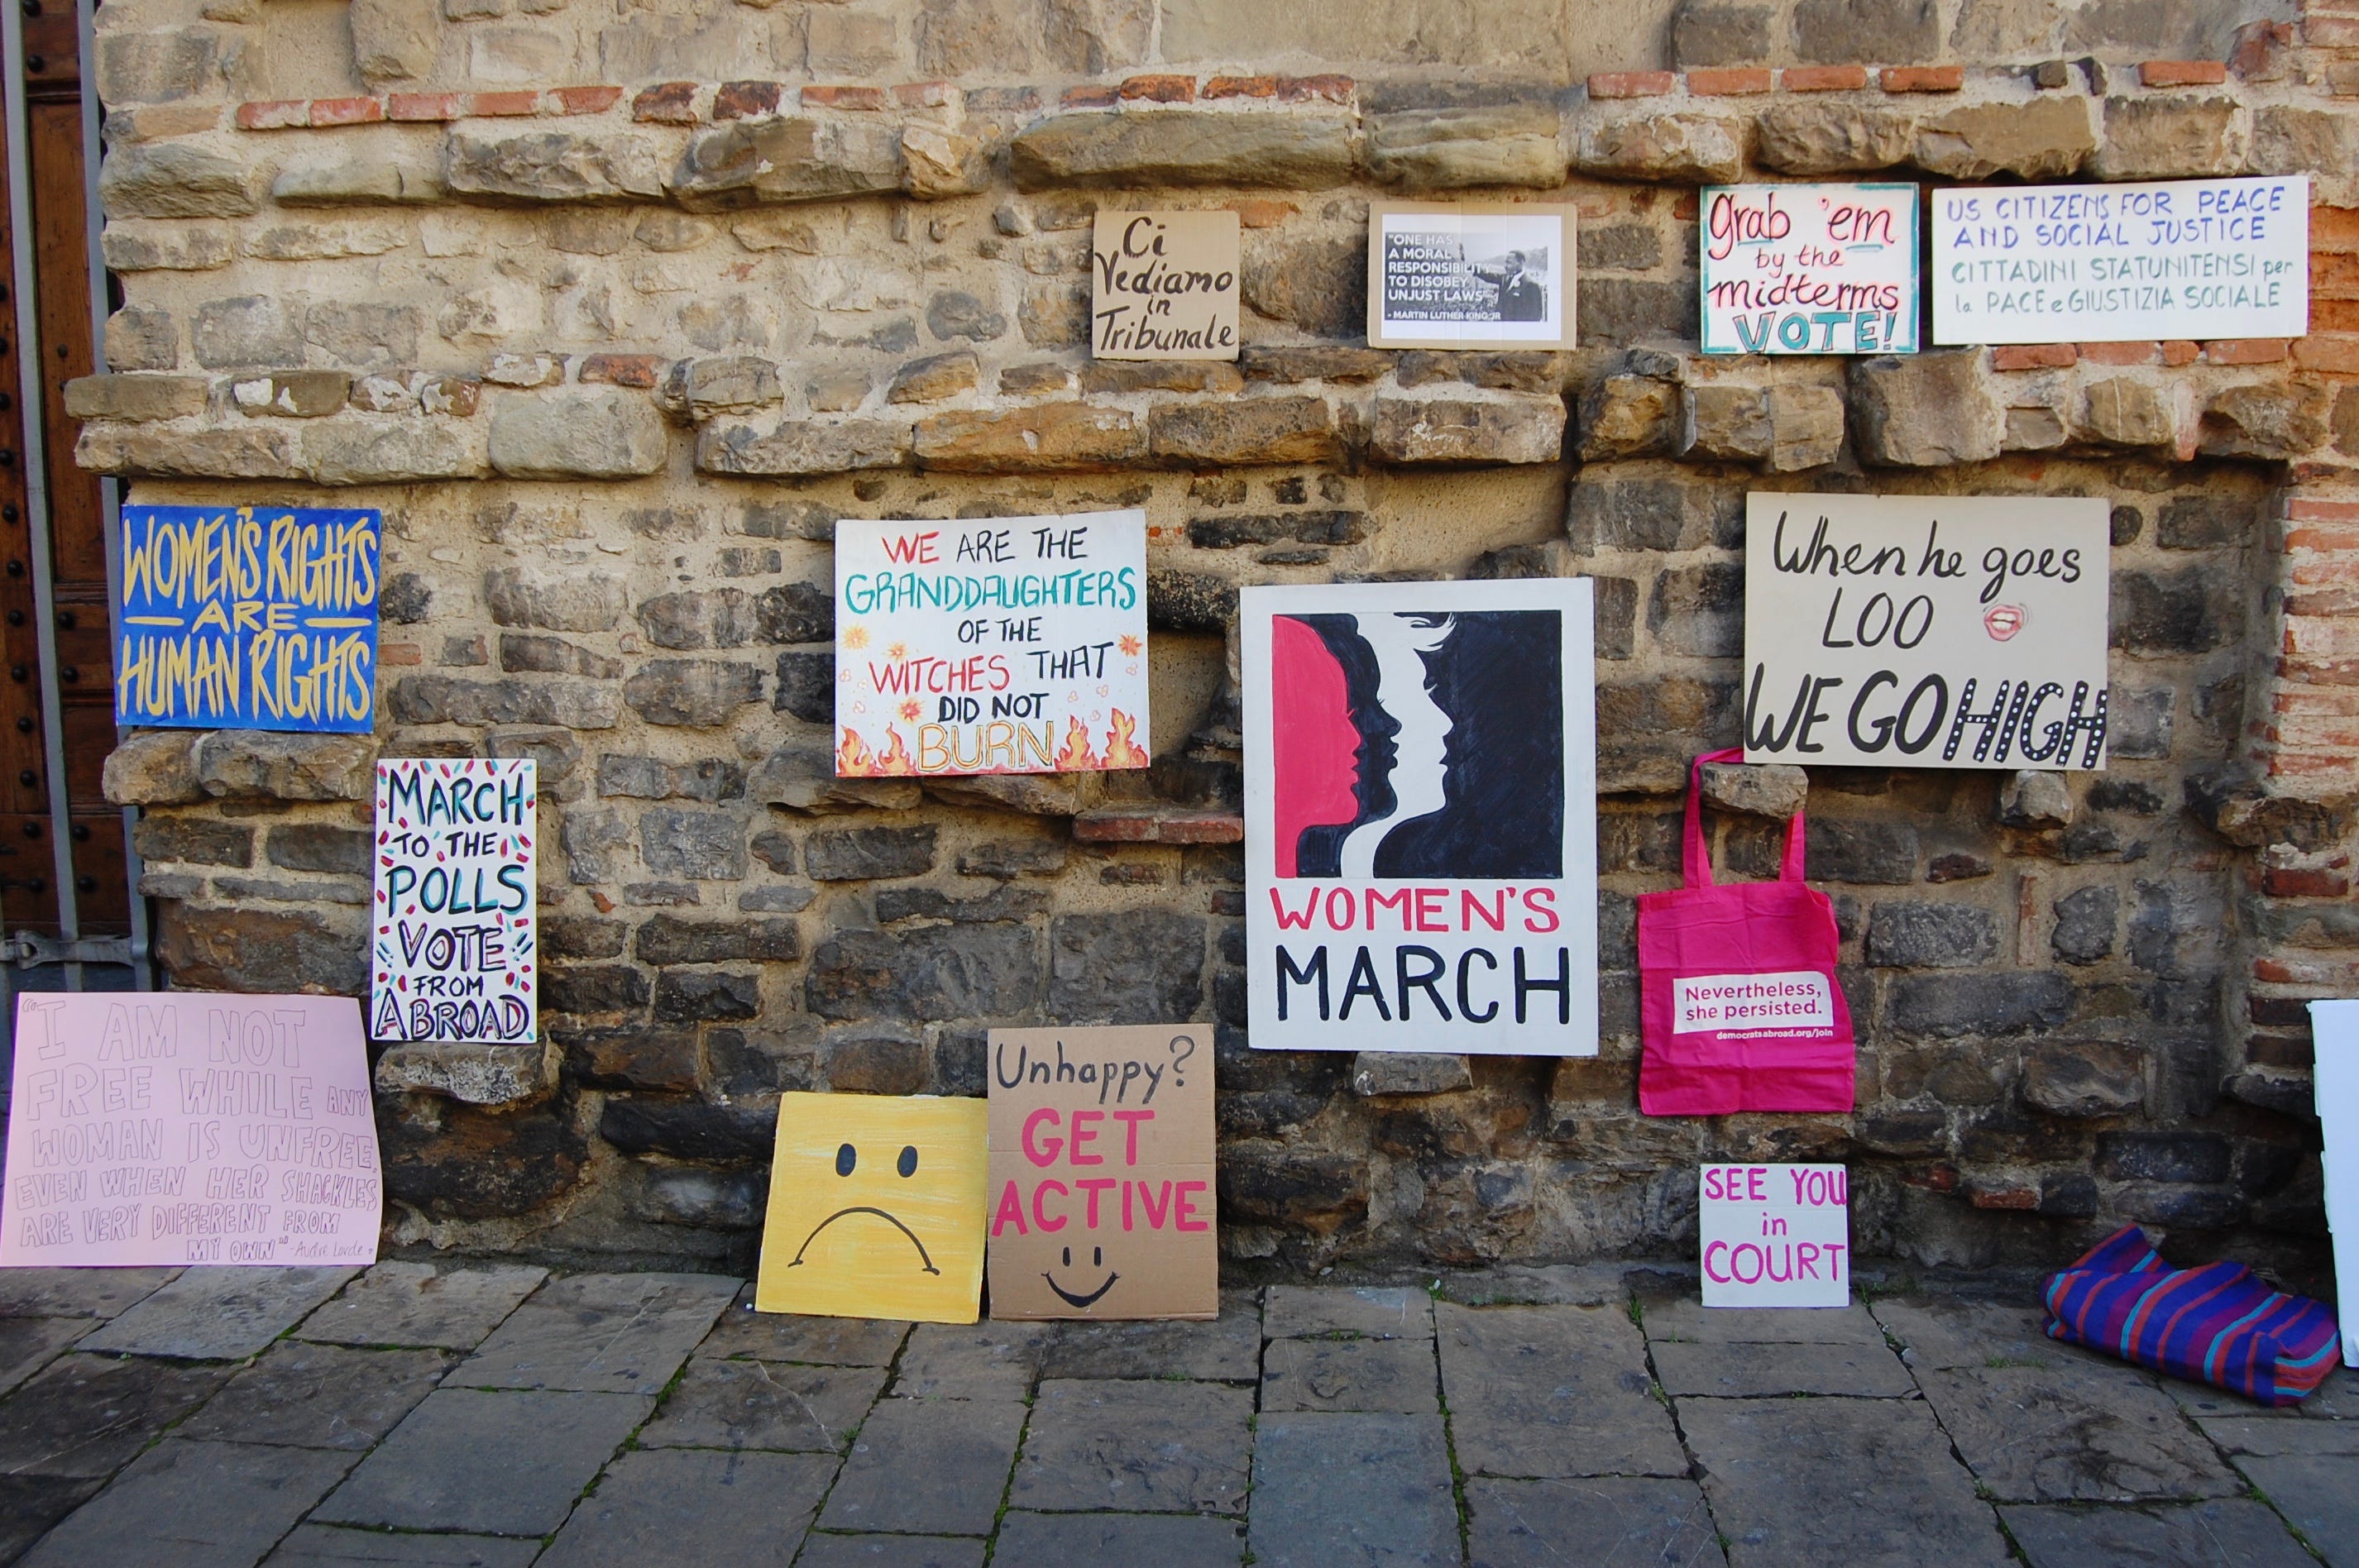 Ci
Vediamo
in
Tribunale
"ONE HAS
A MORAL
RESPONSIBILITY
TO DISOBEY
UNJUST LAWS"
- MARTIN LUTHER KING JR
Grab 'em
by the
midterms
VOTE!
US CITIZENS FOR PEACE
AND SOCIAL JUSTICE
CITTADINI STATUNITENSI per
la PACE e GIUSTIZIA SOCIALE
WOMEN'S RIGHTS
- ARE -
HUMAN RIGHTS
WE ARE THE
GRANDDAUGHTERS
OF THE
WITCHES THAT
DID NOT
BURN
When he goes
LOO
WE GO HIGH
WOMEN'S
MARCH
MARCH
TO THE
POLLS
VOTE
FROM
ABROAD
Nevertheless,
she persisted.
democratsabroad.org/join
"I AM NOT
FREE WHILE ANY
WOMAN IS UNFREE,
EVEN WHEN HER SHACKLES
ARE VERY DIFFERENT FROM
MY OWN" - Audre Lorde
Unhappy?
GET
ACTIVE
SEE YOU
in
COURT